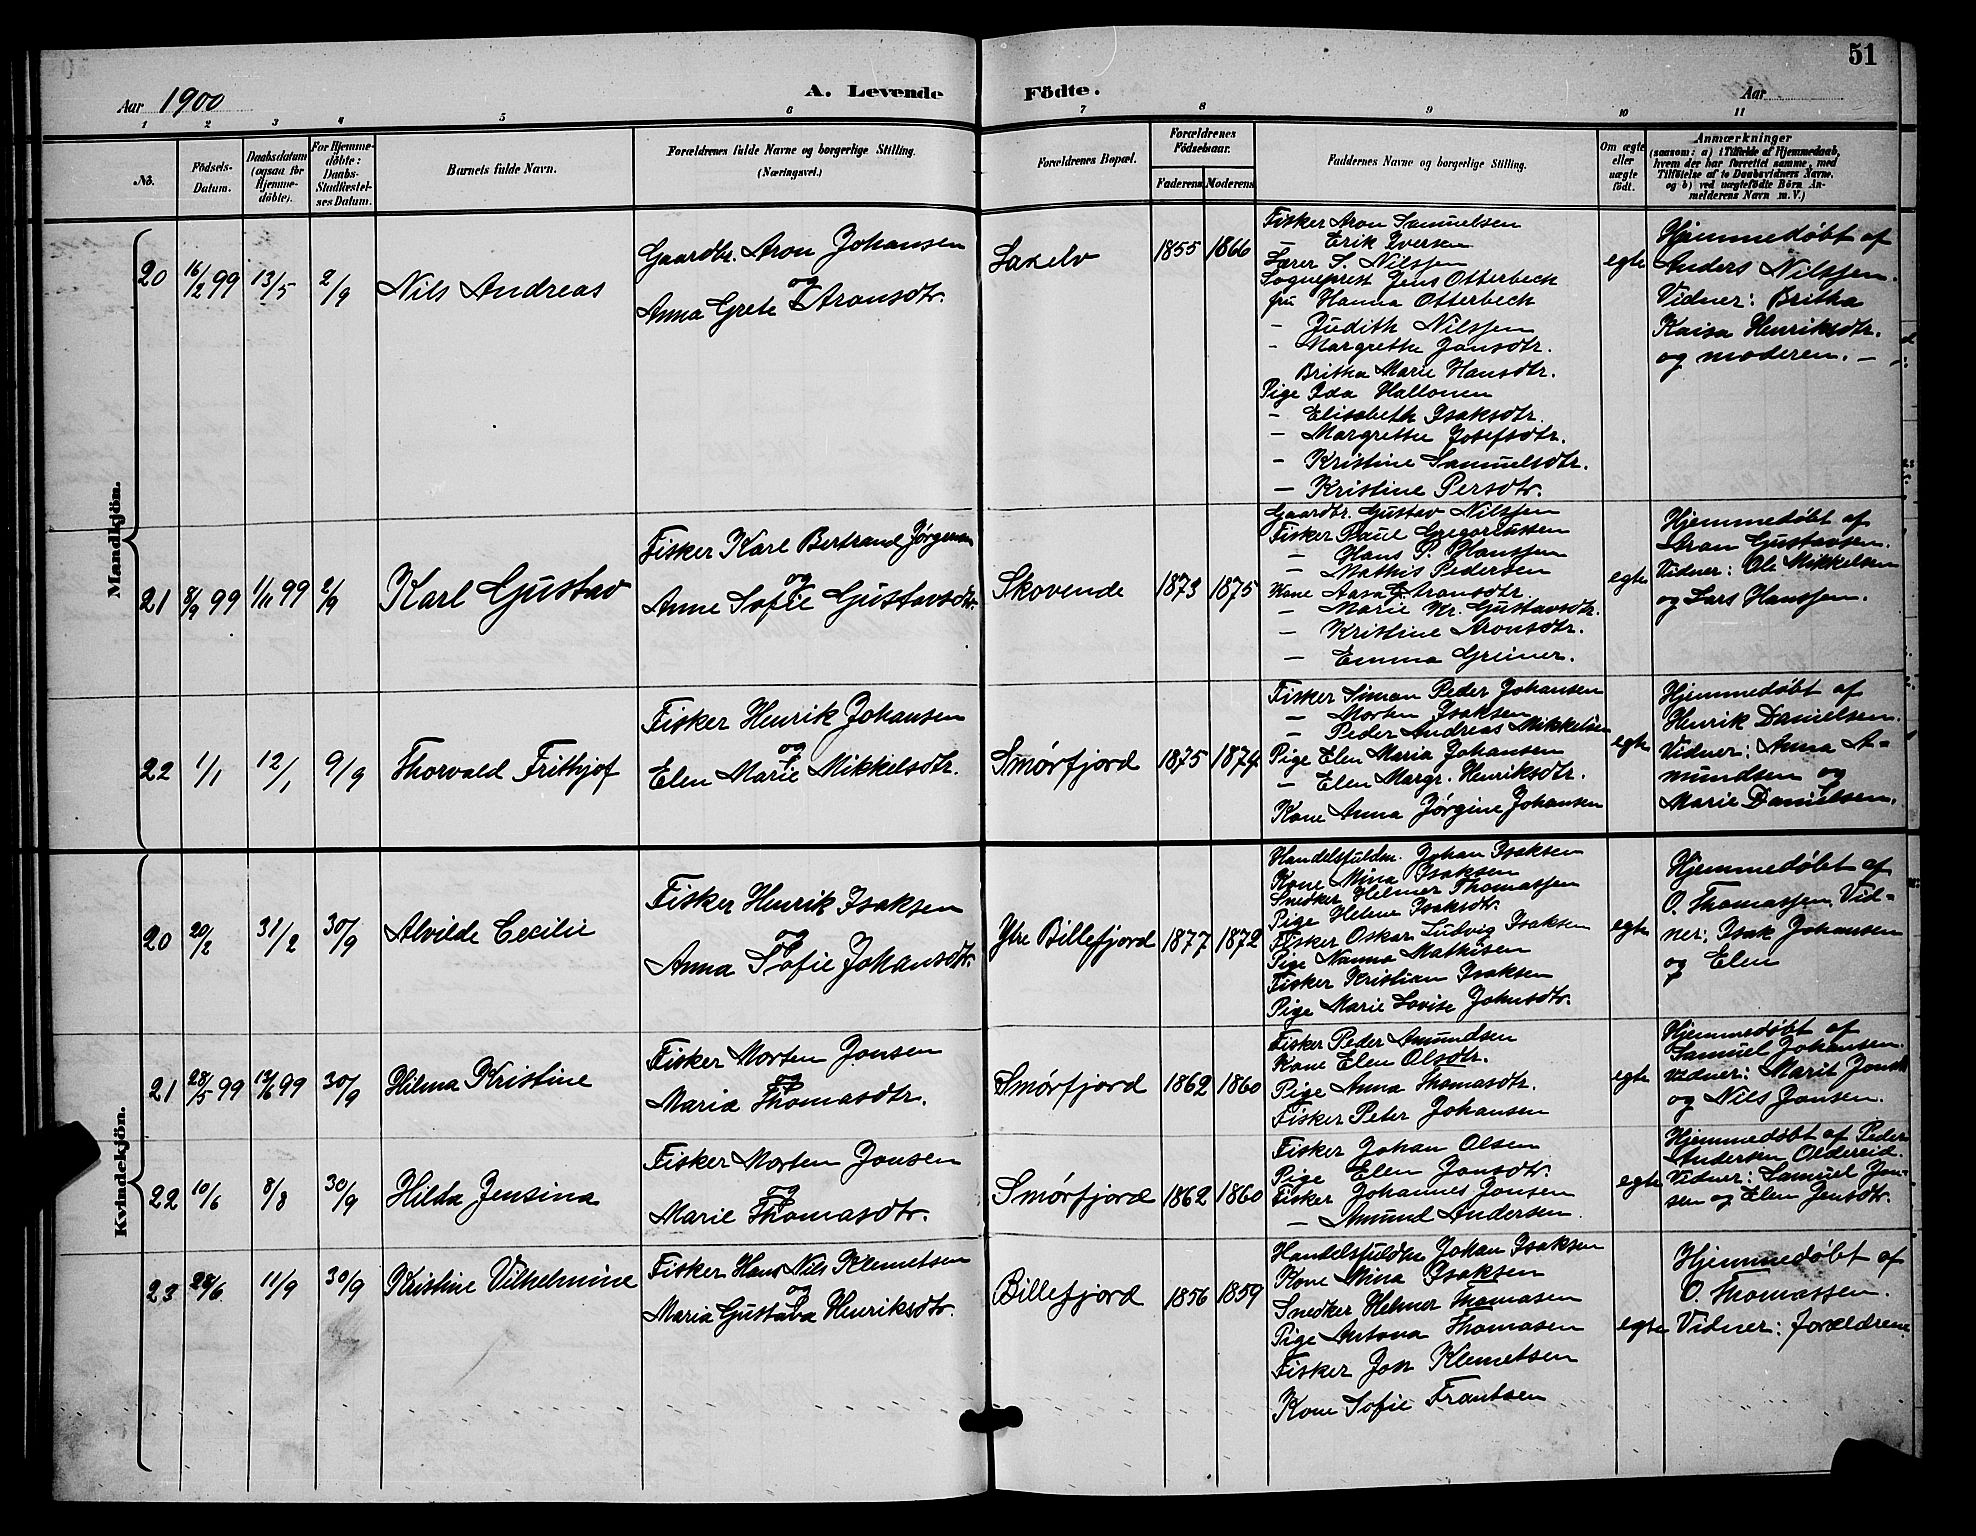 51
Aar 1900
A. Levende Födte.
Aar
1 2 3 4 5 6 7 8 9 10 11
No.
Födsels-Datum.
Daabsdatum (ogsaa for Hjemme-döbte).
For Hjemme-döbte: Daabs-Stadfæstel-ses Datum.
Barnets fulde Navn.
Forældrenes fulde Navne og borgerlige Stilling.
(Næringsvei.)
Forældrenes Bopæl.
Forældrenes Födselsaar.
Faderens Moderens
Faddernes Navne og borgerlige Stilling.
Om ægte eller uægte födt.
Anmærkninger
(saasom: a) i Tilfælde af Hjemmedaab,
hvem der har forrettet samme, med
Tilföielse af to Daabsvidners Navne.
og b) ved uægtefödte Börn An-
melderens Navn m. V.)
Mandkjön.
20 16/2 99 13/5 2/9 Nils Andreas
Gaardbr. Aron Johansen
og
Anna Grete Aronsdtr.
Laxelv 1855 1866
Fisker Aron Samuelsen
— Erik Iversen
Lærer S. Nilssen
Sogneprest Jens Otterbeck
fru Hanna Otterbeck
- Judith Nilssen
- Margrethe Jonsdtr.
Britha Marie Hansdtr.
Pige Ida Hallonen
- Elisabeth Isaksdtr.
- Margrethe Josefsdtr.
- Kristine Samuelsdtr.
- Kristine Persdtr.
egte
Hjemmedøbt af
Anders Nilssen.
Vidner: Britha
Kaisa Henriksdtr.
og moderen. —
21 8/9 99 1/11 99 2/9 Karl Gustav
Fisker Karl Bertrand Jørgensen
og
Anne Sofie Gustavsdtr.
Skovende 1873 1875
Gaardbr. Gustav Nilssen
Fisker Paul Gregoriussen
— Hans P. Hanssen
— Mathis Pedersen
Kone Aronsdtr.
— Marie Kr. Gustavsdtr.
— Kristine Aronsdtr.
— Emma Greiner.
egte
Hjemmedøbt af
Aron Gustavsen.
Vidner: Ole Mikkelsen
og Lars Hanssen.
22 1/1 12/1 9/9 Thorvald Frithjof
Fisker Henrik Johansen
og
Elen Marie Mikkelsdtr.
Smørfjord 1875 1874
Fisker Simon Peder Johansen
— Morten Isaksen
— Peder Andreas Mikkelsen
Pige Elen Maria Johansen
— Elen Margr. Henriksdtr.
Kone Anna Jørgine Johansen
egte
Hjemmedøbt af
Henrik Danielsen.
Vidner: Anna A-
mundsen og
Marie Danielsen.
Kvindekjön.
20 20/2 31/2 30/9 Alvilde Cecilie
Fisker Henrik Isaksen
og
Anna Sofie Johansdtr.
Ytre Billefjord 1877 1872
Handelsfuldm. Johan Isaksen
Kone Mina Isaksen
Snedker Helmer Thomassen
Pige Helene Isaksdtr.
Fisker Oskar Ludvig Isaksen
Pige Nanna Mathisen
Fisker Kristian Isaksen
Pige Marie Lovise Johnsdtr.
egte
Hjemmedøbt af
O. Thomassen, Vid-
ner: Isak Johansen
og Elen
21 28/5 99 12/6 99 30/9 Hilma Kristine
Fisker Morten Jonsen
og
Maria Thomasdtr.
Smørfjord 1862 1860
Fisker Peder Amundsen
Kone Elen Olsdtr.
Pige Anna Thomasdtr.
Fisker Peter Johansen
egte
Hjemmedøbt af
Samuel Johansen.
Vidner: Marit Jonsd
og Nils Jonsen.
22 10/6 8/8 30/9 Hilda Jensina
Fisker Morten Jonsen
og
Marie Thomasdtr.
Smørfjord 1862 1860
Fisker Johan Olsen
Pige Elen Jonsdtr.
Fisker Johannes Jonsen
— Amund Andersen.
egte
Hjemmedøbt af Peder
Andersen Oldereid.
Vidner: Samuel Jon-
sen og Elen Jensdtr.
23 28/6 11/9 30/9 Kristine Vilhelmine
Fisker Hans Nils Klemetsen
og
Maria Gustava Henriksdtr.
Billefjord 1856 1859
Handelsfuldm Johan Isaksen
Kone Mina Isaksen
Snedker Helmer Thomasen
Pige Antona Thomasen
Fisker Jon Klemetsen
Kone Sofie Frantsen
egte
Hjemmedøbt af
O. Thomassen.
Vidner: Forældrene